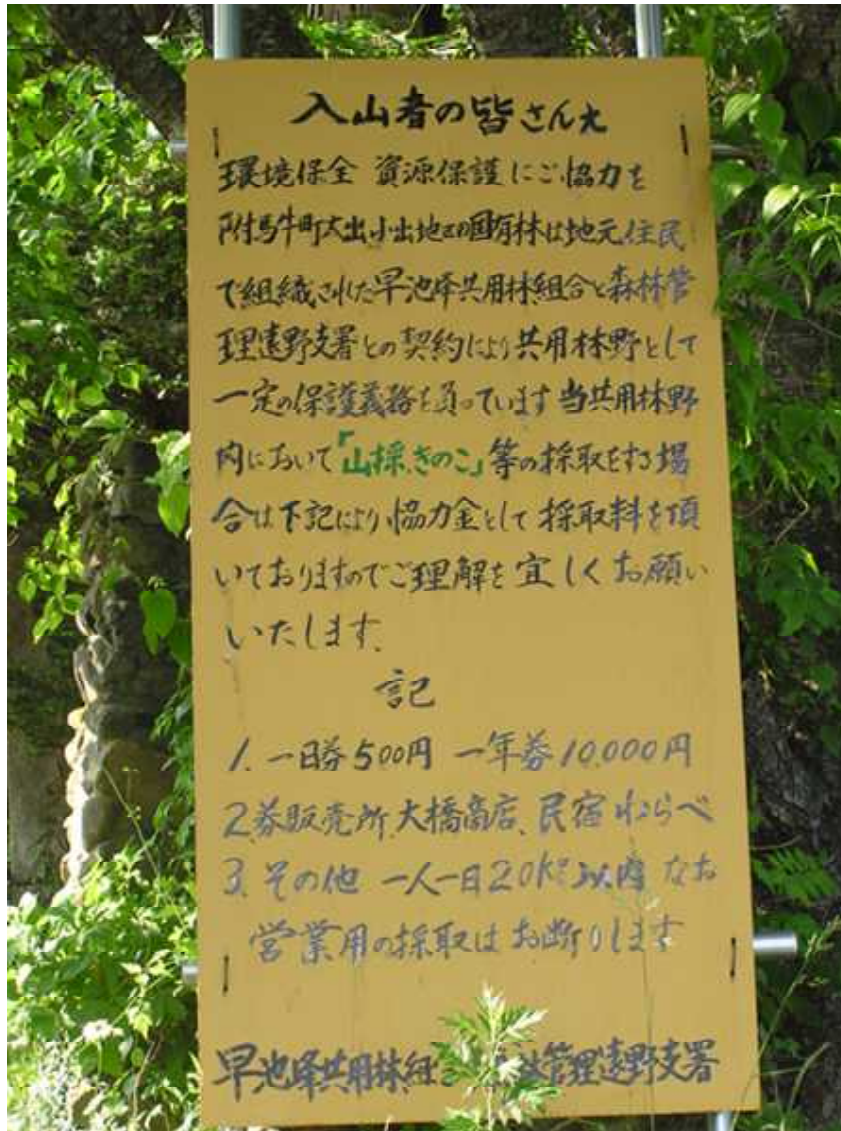 入山者の皆さんへ
環境保全 資源保護にご協力を
附馬牛町大出小出地区の国有林は地元住民
で組織された早池峰共用林組合と森林管
理遠野支署との契約により共用林野として
一定の保護義務を負っています 当共用林野
内において「山採.きのこ」等の採取をする場
合は下記により協力金として採取料を頂
いておりますのでご理解を宜しくお願い
いたします.
記
1. 一日券500円 一年券10.000円
2.券販売所.大橋商店.民宿わらべ
3.その他 一人一日20Kg以内 なお
営業用の採取はお断りします
早池峰共用林組 管理遠野支署